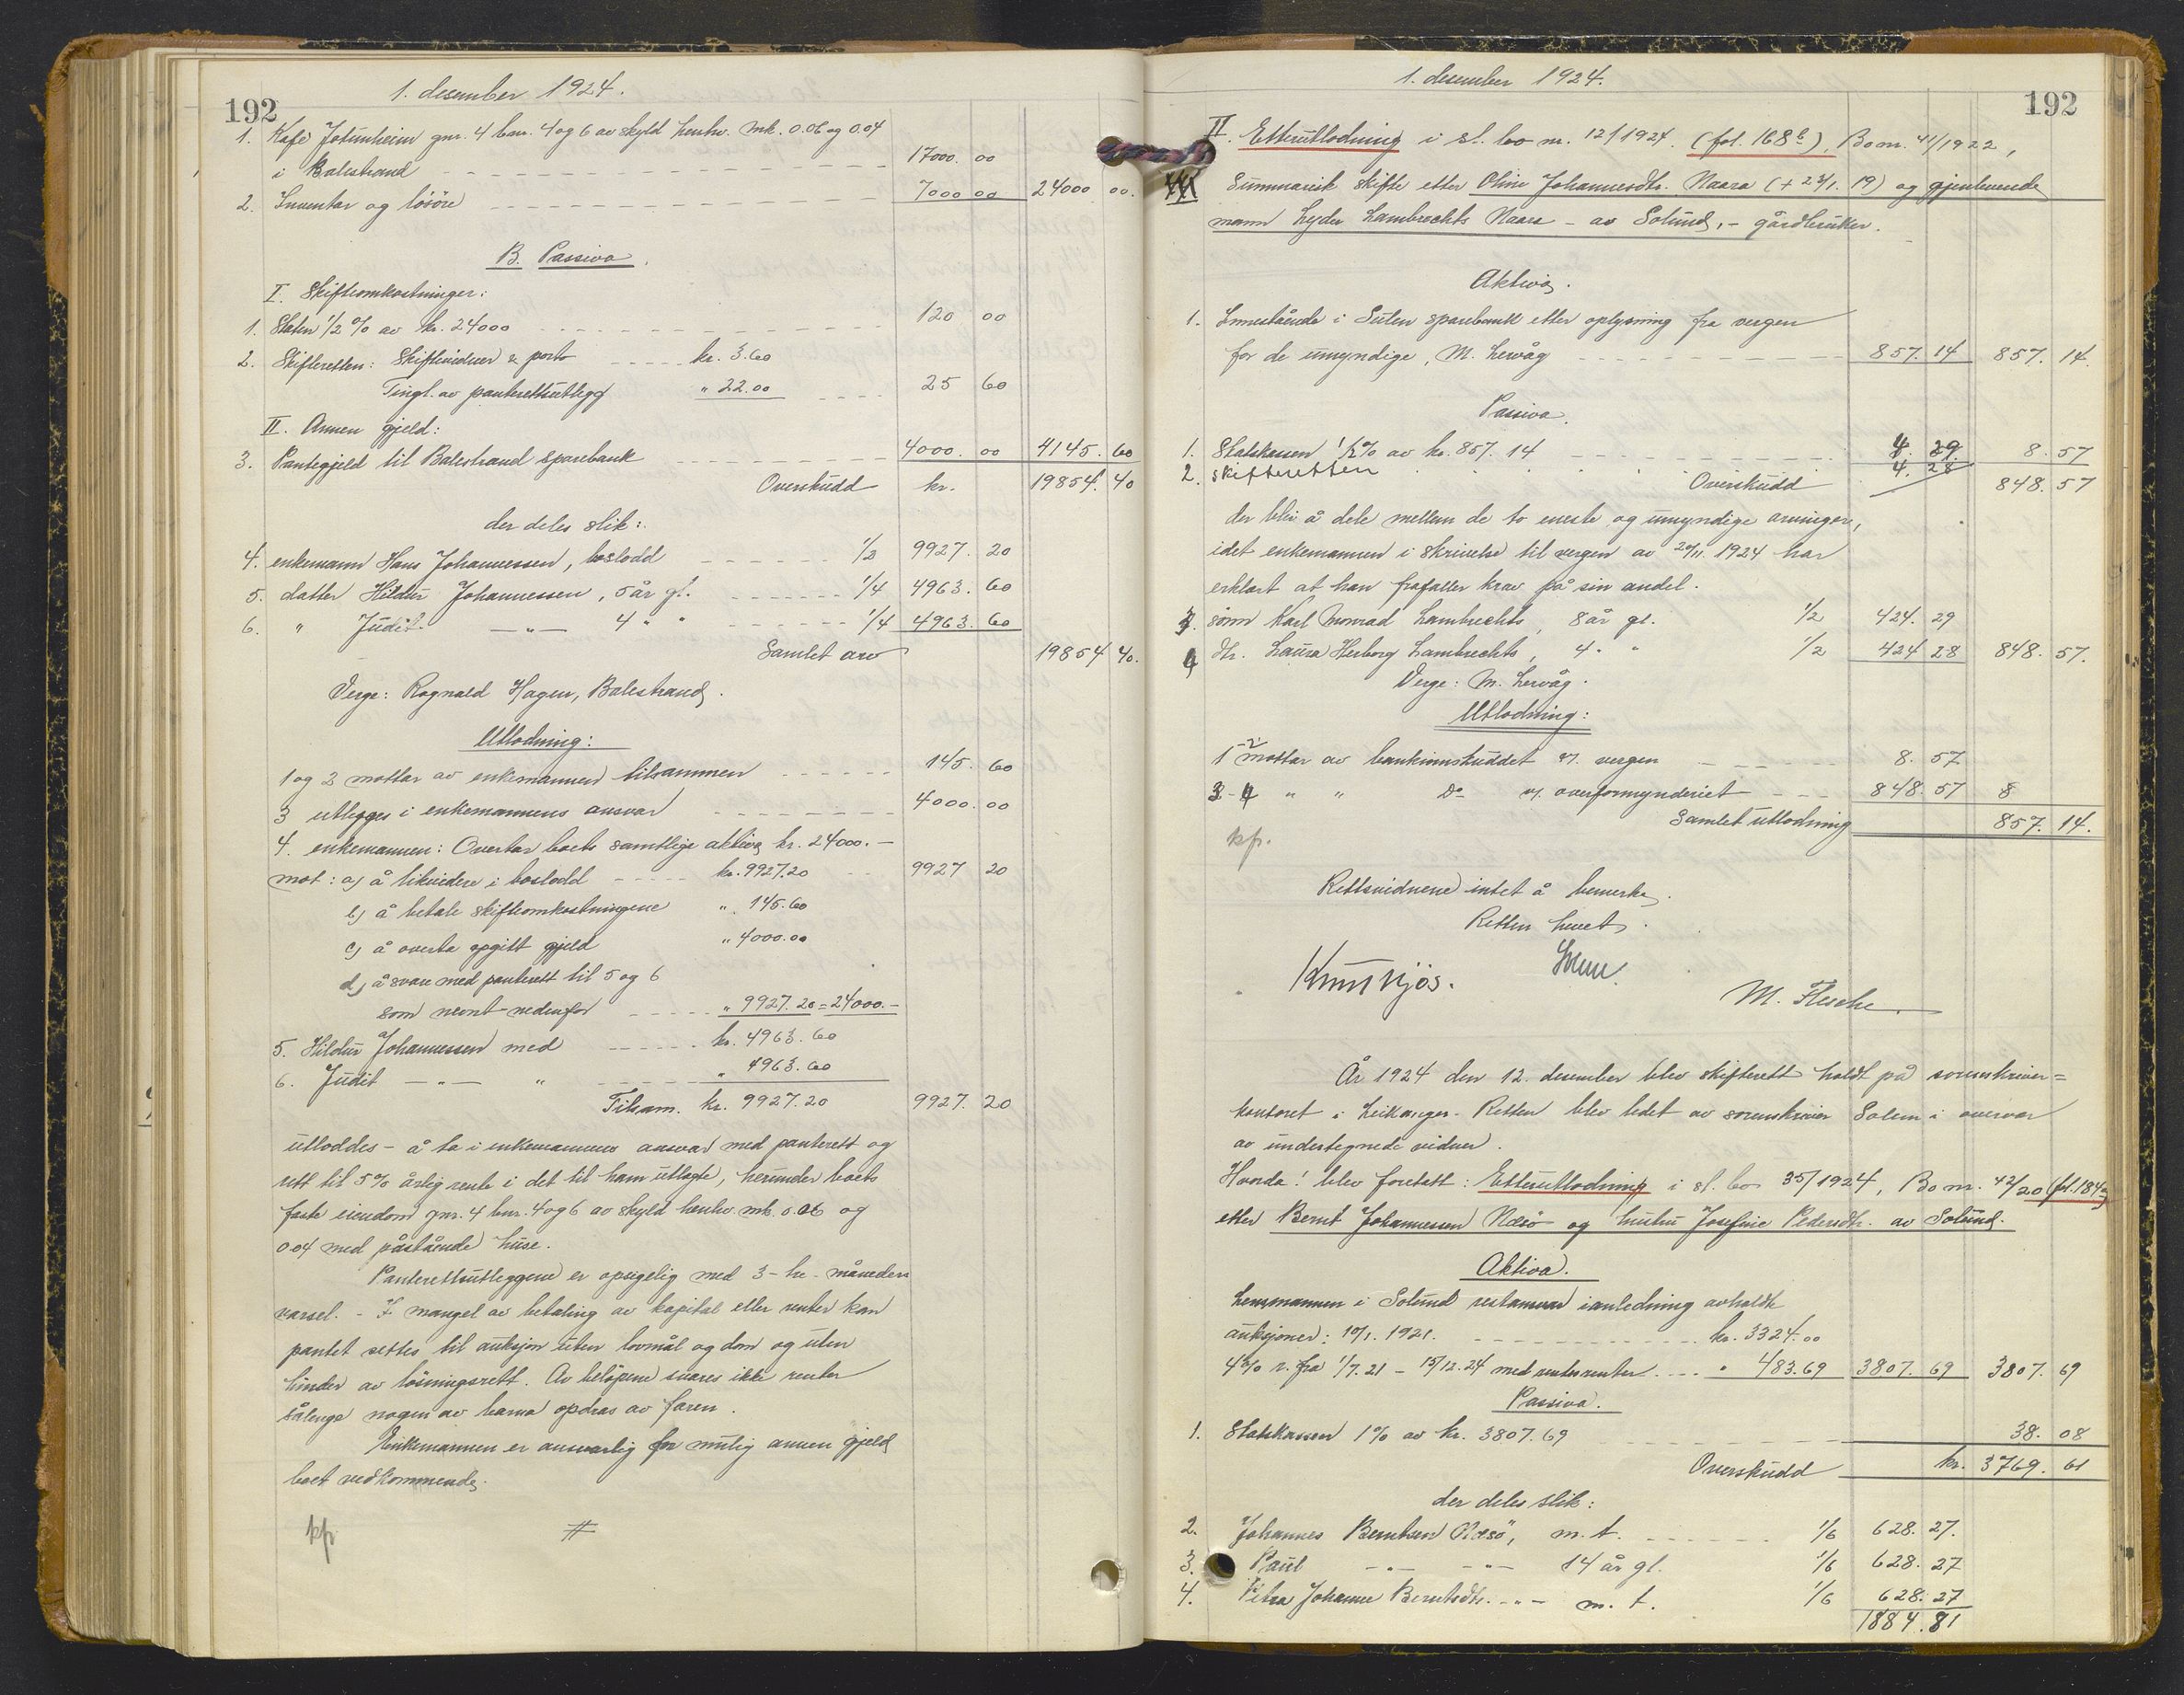 192
1. desember 1924.
1. Kafé Jotunheim gnr. 4 bnr. 4 og 6 av skyld henhv. mk. 0.06 og 0.04
i Balestrand 17000.00
2. Inventar og lösöre 7000 00 24000 00.
B. Passiva.
I. Skifteomkostninger:
1. Staten 1/2 % av kr. 24000 120 00
2. Skifteretten: Skiftevidner & porto kr. 3.60
Tingl. av panterettsutlegg " 22.00 25 60
II. Annen gjeld:
3. Pantegjeld til Balestrand sparebank 4000.00 4145.60
Overskudd kr. 19854.40
der deles slik:
4. enkemann Hans Johannessen, boslodd 1/2 9927.20
5. datter Hildur Johannessen, 5 år gl. 1/4 4963.60
6. " Judit —"— 4 " " 1/4 4963.60
Samlet arv 19854 40.
Verge: Ragnald Hagen, Balestrand.
Utlodning:
1 og 2 mottar av enkemannen tilsammen 145.60
3 utlegges i enkemannens ansvar 4000.00
4. enkemannen: Overtar boets samtlige aktiva kr. 24000.—
mot: a) å likvidere i boslodd kr. 9927.20 9927 20
b) å betale skifteomkostningene " 145.60
c) å overta opgitt gjeld " 4000.00
d) å svare med panterett til 5 og 6
som nevnt nedenfor " 9927.20 = 24000.—
5. Hildur Johannessen med kr. 4963.60
6. Judit —"— " " 4963.60
Tilsam. kr. 9927.20 9927.20
utloddes - å ta i enkemannens ansvar med panterett og
rett til 5% årlig rente i det til ham utlagte, herunder boets
faste eiendom gnr. 4 bnr. 4 og 6 av skyld henhv. mk. 0.06 og
0.04 med påstående huse.
Panterettsutleggene er opsigelig med 3 - tre - måneders
varsel. - I mangel av betaling av kapital eller renter kan
pantet settes til auksjon uten lovmål og dom og uten
hinder av lösningsrett. Av belöpene svares ikke renter
sålenge nogen av barna opdras av faren.
Enkemannen er ansvarlig for mulig annen gjeld
boet vedkommende.
kp. #
1. desember 1924.
192
II. Etterutlodning i sl. bo nr. 12/1924. (fol. 168b), Bo nr. 41/1922,
Summarisk skifte etter Oline Johannesdtr. Naara (+ 23/1. 19) og gjenlevende
mann Lyder Lambrechts Naara - av Solund, - gårdbruker.
Aktiva.
1. Innestående i Sulen sparebank etter oplysning fra vergen
for de umyndige, M. Lervåg 857.14 857.14.
Passiva.
1. Statskassen 1/2% av kr. 857.14 4.29 8.57
2. skifteretten 4.28
Overskudd 848.57
der blir å dele mellem de to eneste og umyndige arvinger,
idet enkemannen i skrivelse til vergen av 20/11. 1924 har
erklært at han frafaller krav på sin andel.
3. sönn Karl Monrad Lambrechts, 8 år gl. 1/2 424.29
4 dtr. Laura Herborg Lambrechts, 4 " " 1/2 424 28 848.57.
Verge: M. Lervåg.
Utlodning:
1-2 mottar av bankinnskuddet v/ vergen 8.57
3-4 " " Do v/ overformynderiet 848.57 8
Samlet utlodning 857.14.
kp.
Rettsvidnene intet å bemerke.
Retten hevet.
Knut Njös. Solem. M. Flesche.
År 1924 den 12. desember blev skifterett holdt på sorenskriver=
kontoret i Leikanger. Retten blev ledet av sorenskriver Solem i overvær
av undertegnede vidner.
Hvorda! blev foretatt: Etterutlodning i sl. bo 35/1924, Bo nr. 42/20 (fol. 184a)
etter Bernt Johannessen Nåsö og hustru Josefine Pedersdtr. av Solund.
Aktiva.
Lensmannen i Solund restansvar ianledning avholdte
auksjoner: 10/1. 1921. kr. 3324.00
4% r. fra 1/7. 21 - 15/12. 24 med rentesrenter " 483.69 3807.69 3807.69
Passiva.
1. Statskassen 1% av kr. 3807.69 38.08
Overskudd kr. 3769.61
der deles slik:
2. Johannes Berntsen Nåsö, m. t. 1/6 628.27.
3. Paul —"— —"— 14 år gl. 1/6 628.27
4. Petra Johanne Berntsdtr. —"— m. t. 1/6 628.27
1884.81